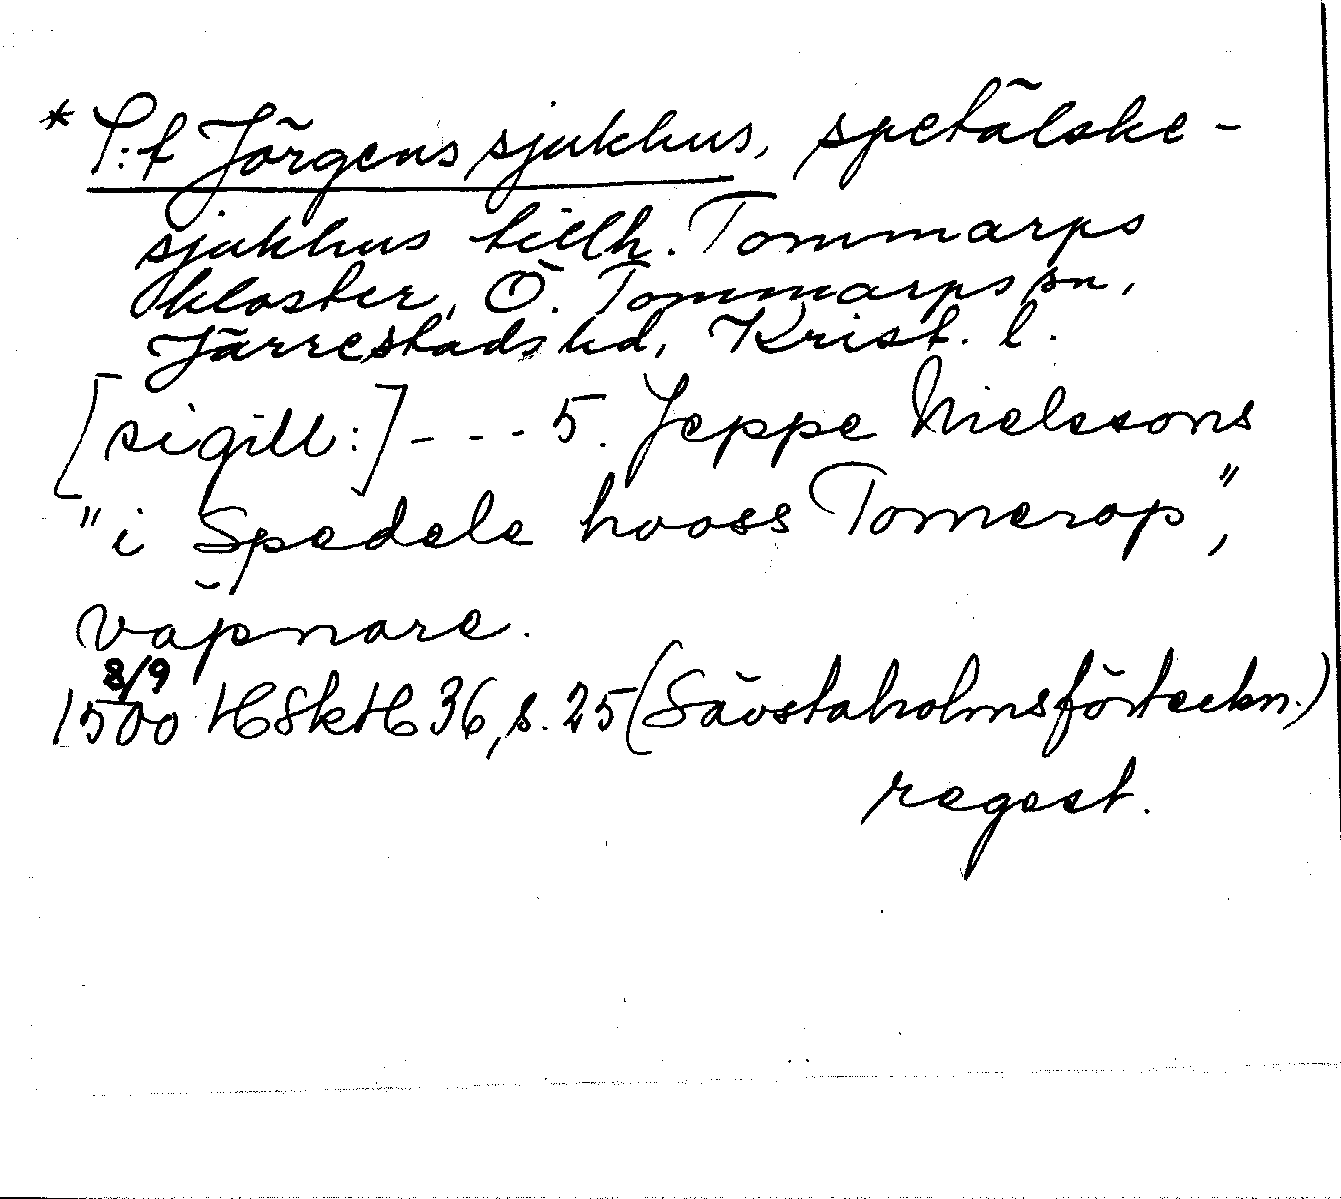 * S:t Jörgens sjukhus, spetälske-
sjukhus tillh. Tommarps
kloster, Ö. Tommarps sn,
Järrestads hd, Krist. l.
[sigill:] - - - 5. Jeppe Nielssons
"i Spedele hooss Tomerop",
väpnare.
8/9
1500 HSkH 36, s. 25 (Sävstaholmsförteckn.)
regest.